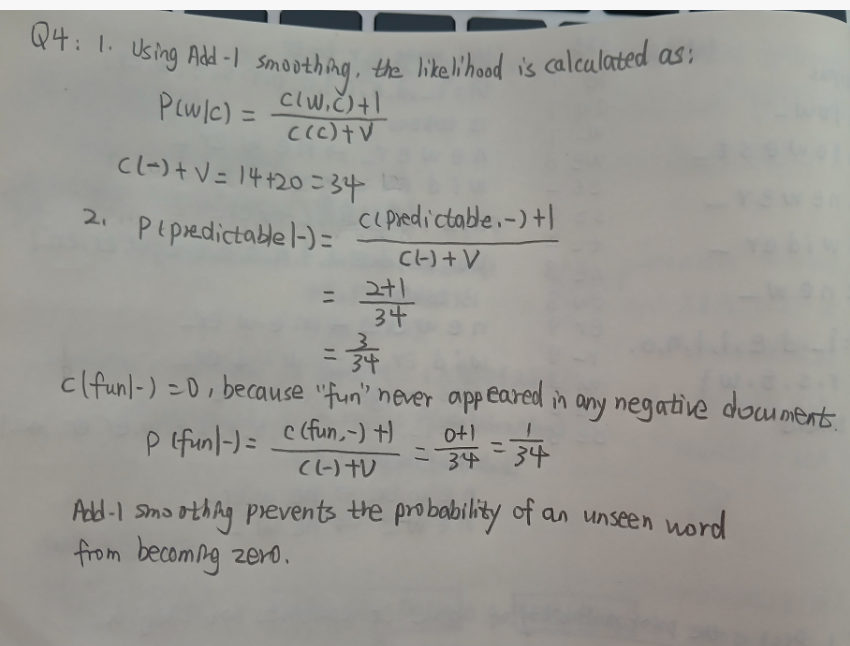 Q4: 1. Using Add-1 smoothing, the likelihood is calculated as:
P(w|c) = (c(w,c)+1)/(c(c)+V)
c(-)+V = 14+20 = 34
2. P(predictable|-) = (c(predictable,-)+1)/(c(-)+V)
= (2+1)/34
= 3/34
c(fun|-) = 0, because "fun" never appeared in any negative document.
P(fun|-) = (c(fun,-)+1)/(c(-)+V) = (0+1)/34 = 1/34
Add-1 smoothing prevents the probability of an unseen word
from becoming zero.